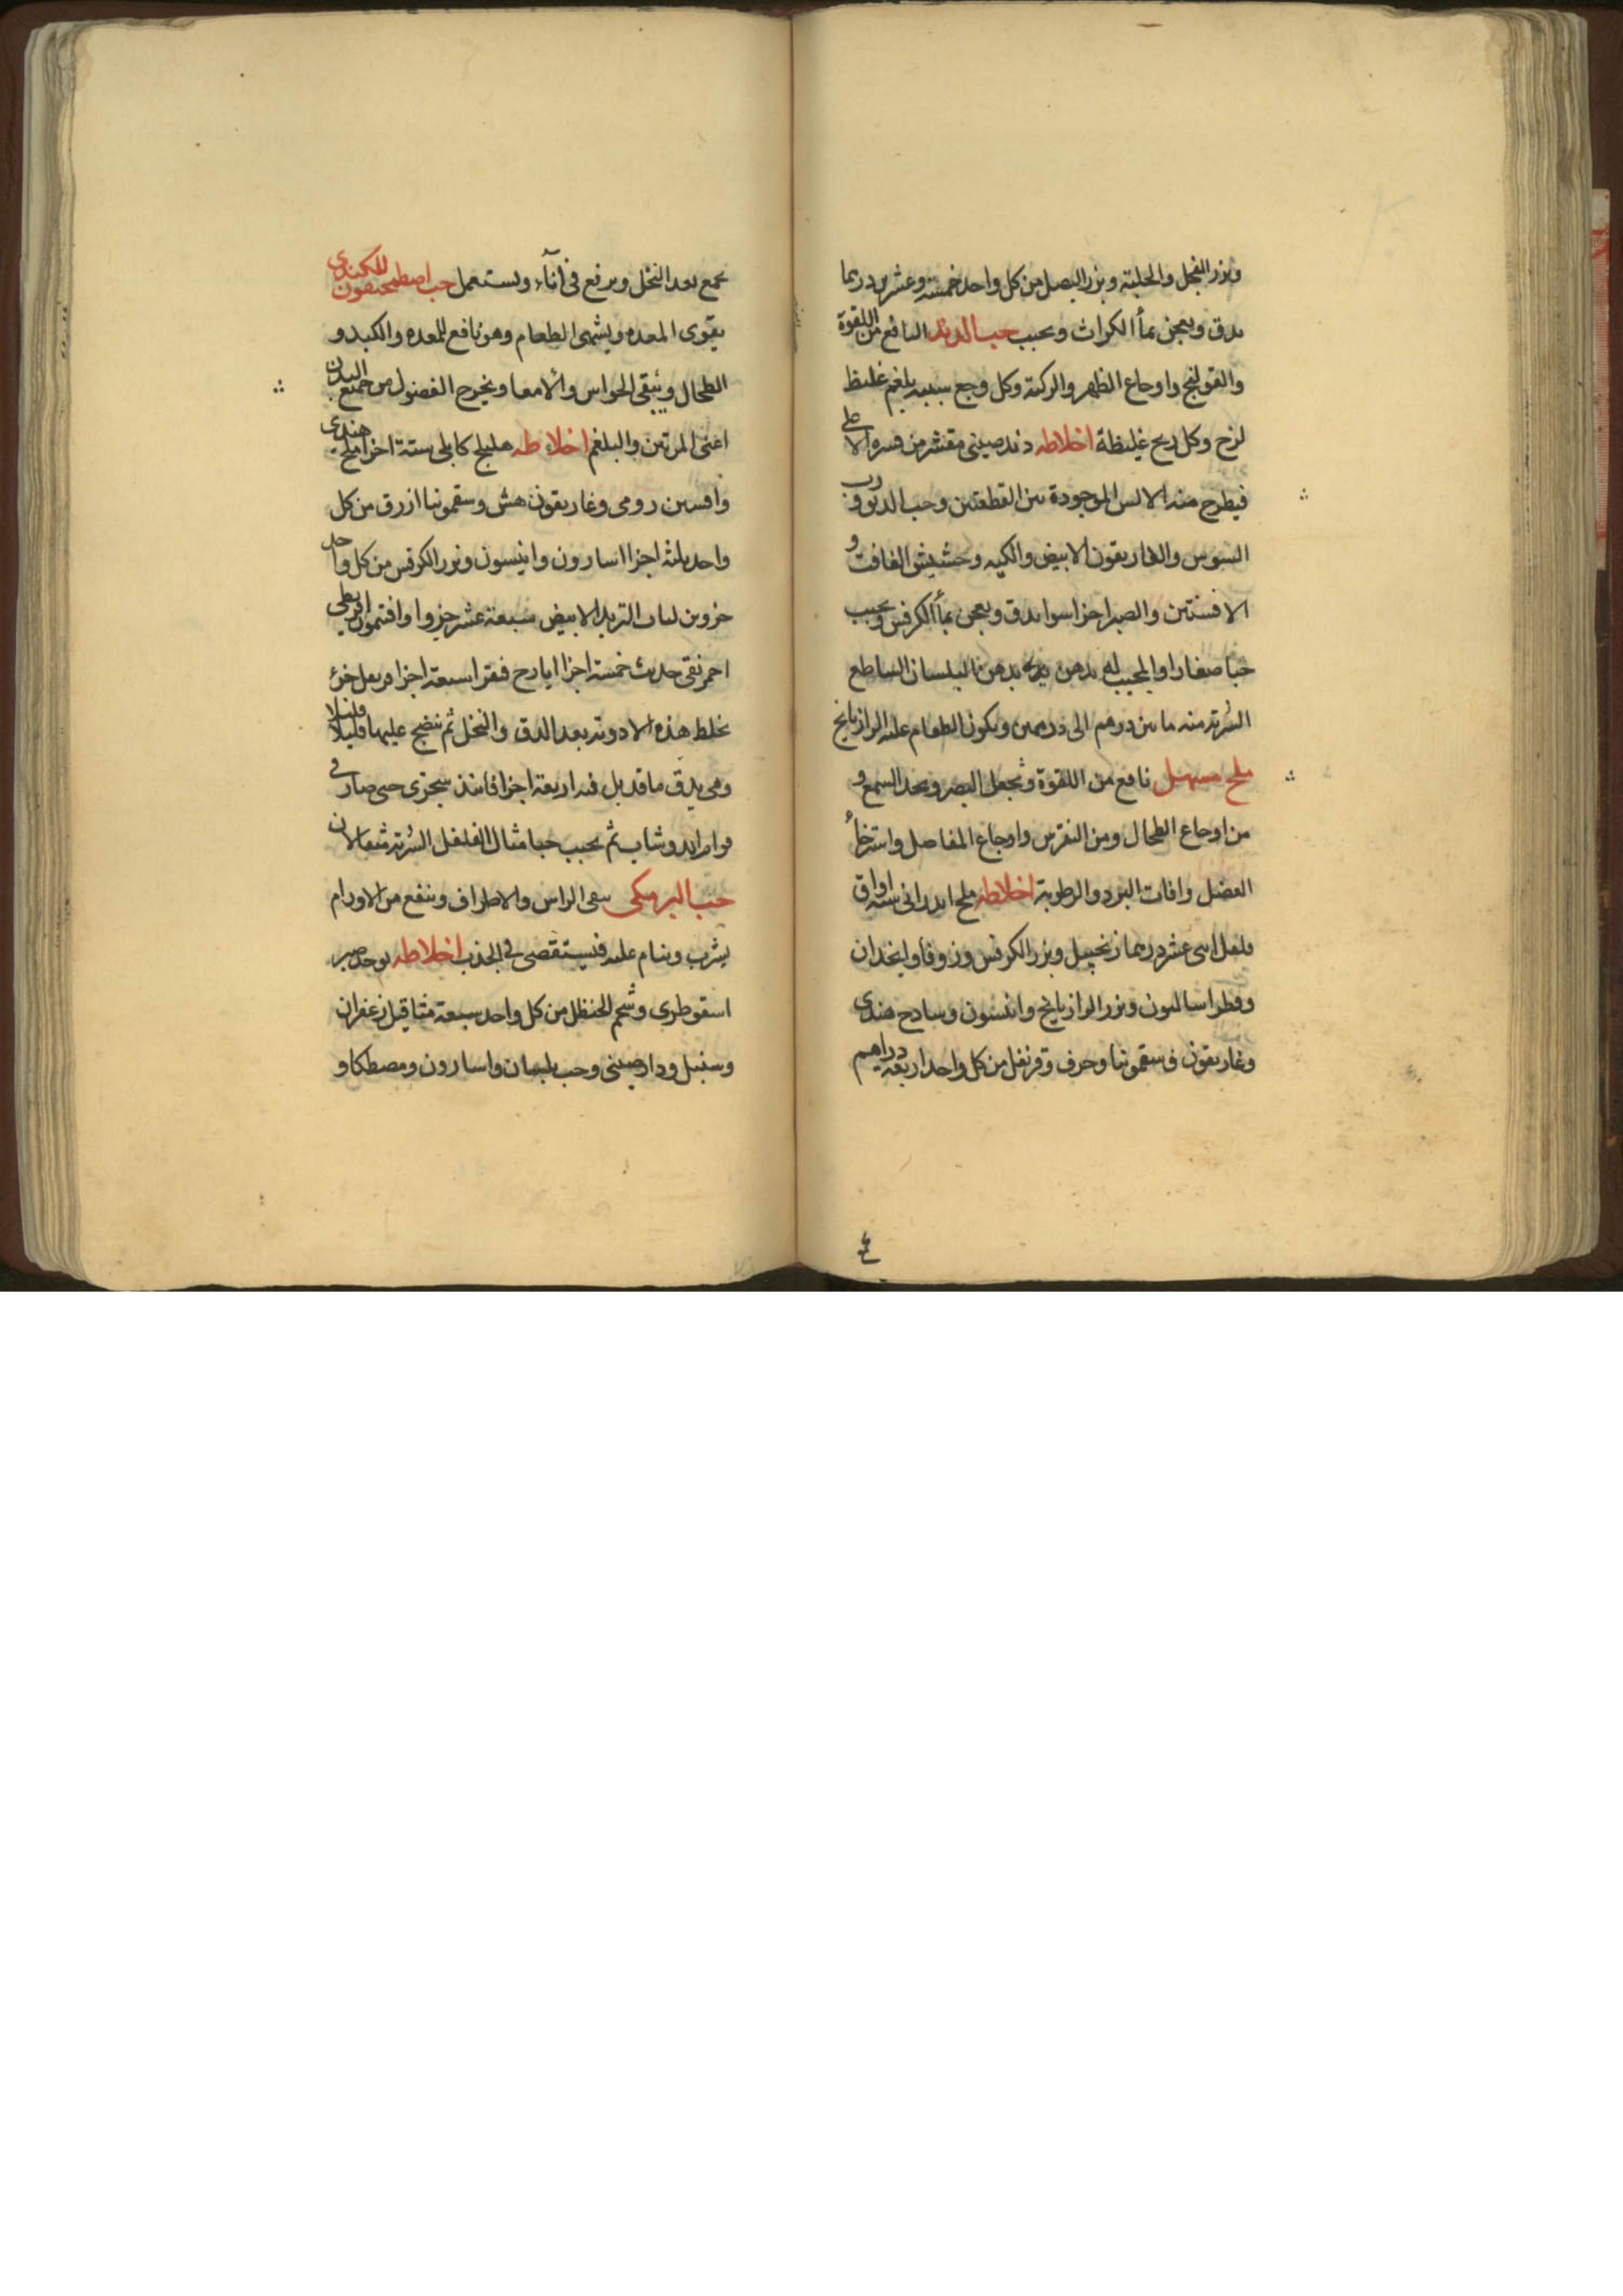 وبزر الفجل والحلبة وبزر البصل من كل واحد خمسة وعشرين درهما
يدق ويعجن بماأ الكراث ويحبب حب الدند النافع من اللقوة
والقولنج واوجاع الظهر والركبة وكل وجع سببه بلغم غليظ
لزج وكل ريح غليظة اخلاطه دند صيني مقشر من قشره الاعلى
فيطرح منه الالسن الموجودة بين القطعتين وحب ورب
السوس والغاريقون الابيض والكيه وحشيش الغافت و
الافسنتين والصبر اجزا سوا يدق ويعجن بماأ الكرفس ويحبب
حبا صغارا والمحبب له يدهن يديه بدهن البلسان الساطع
الشربة منه ما بين درهم الى درهمين ويكون الطعام عليه الرازيانج
ملح مسهل نافع من اللقوة ويحد السمع و
من اوجاع الطحال ومن النقرس واوجاع المفاصل واسترخأ
العضل وافات البرد والرطوبة اخلاطه ملح اندراني ستة اواق
فلفل اثنى عشر درهما زنجبيل وبزر الكرفس وزوفا وانجدان
وفطراساليون وبزر الرازيانج وانيسون وسادج هندي
وغاريقون وسقمونيا وحرف وقرنفل من كل واحد اربعة دراهم
٤
يجمع بعد النخل ويرفع في انآء ويستعمل حب اصطمحيقون للكندي
يقوى المعده ويشهى الطعام وهو نافع للمعده والكبد و
الطحال وينقى الحواس والامعا ويخرج الفضول من جميع البدن
اعنى المرتين والبلغم اخلاطه هليلج كابلي ستة اجزا ملح هندي
وافسنتين رومى وغاريقون هش وسقمونيا ازرق من كل
واحد ثلثه اجزا اسارون وانيسون وبزر الكرفس من كل واحد
جزوين لباب التربد الابيض سبعة عشر جزوا وافتمون اقريطي
احمر نقى حديث خمسة اجزا ايارج فيقرا سبعة اجزا قرنفل جزؤ
تخلط هذه الادوية بعد الدق والنخل ثم ينضج عليها قليلا قليلا
وهي يدق ما قد بل فيه اربعة اجزا فانيذ سجزى حتى صار في
قوام ثم يحبب حبا مثال الفلفل الشربة مثقالان
حب البرمكى ينقى الراس والاطراف وينفع من الاورام
يشرب وينام عليه فيستقصى في الجذب اخلاطه يوخذ صبر
اسقوطري وشحم الحنظل من كل واحد سبعة مثاقيل زعفران
وسنبل ودارصيني وحب بلسان واسارون ومصطكا و